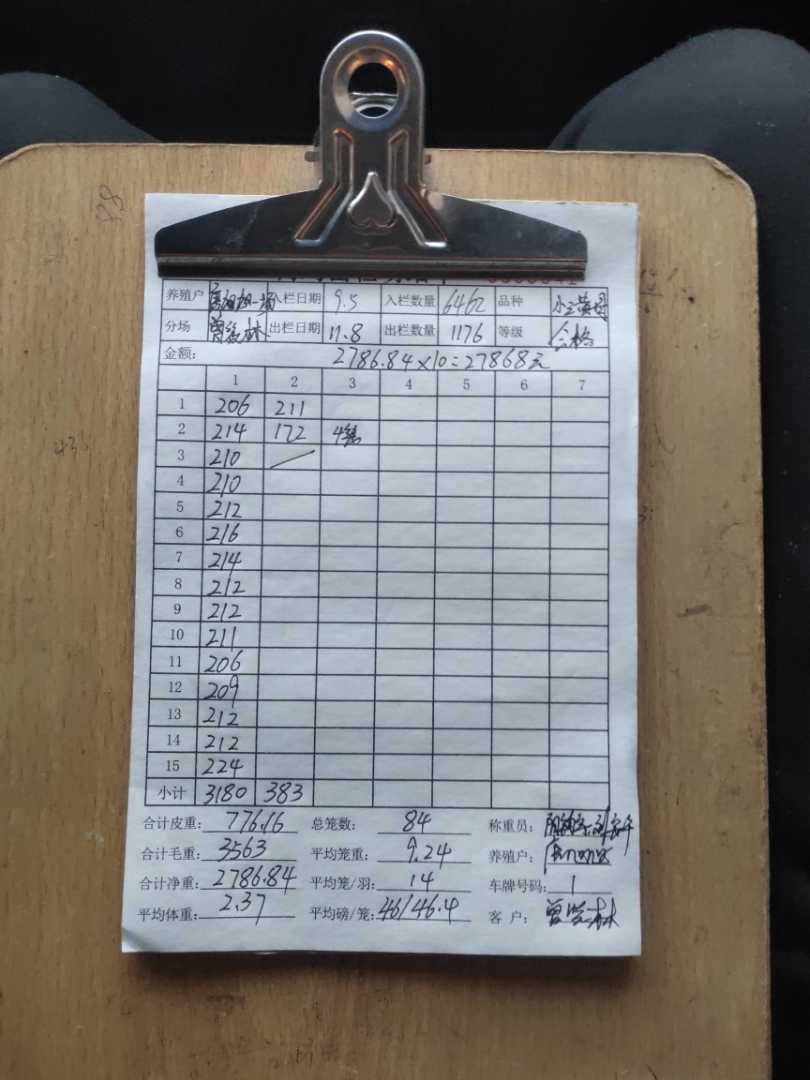 养殖户 入栏日期 9.5 入栏数量 6462 品种
分场 曾繁林 出栏日期 11.8 出栏数量 1176 等级 合格
金额: 2786.84×10=27868元
1 2 3 4 5 6 7
1 206 211
2 214 172 4笼
3 210
4 210
5 212
6 216
7 214
8 212
9 212
10 211
11 206
12 209
13 212
14 212
15 224
小计 3180 383
合计皮重: 776.16 总笼数: 84 称重员:
合计毛重: 3563 平均笼重: 9.24 养殖户:
合计净重: 2786.84 平均笼/羽: 14 车牌号码: 1
平均体重: 2.37 平均磅/笼: 46/46.4 客户: